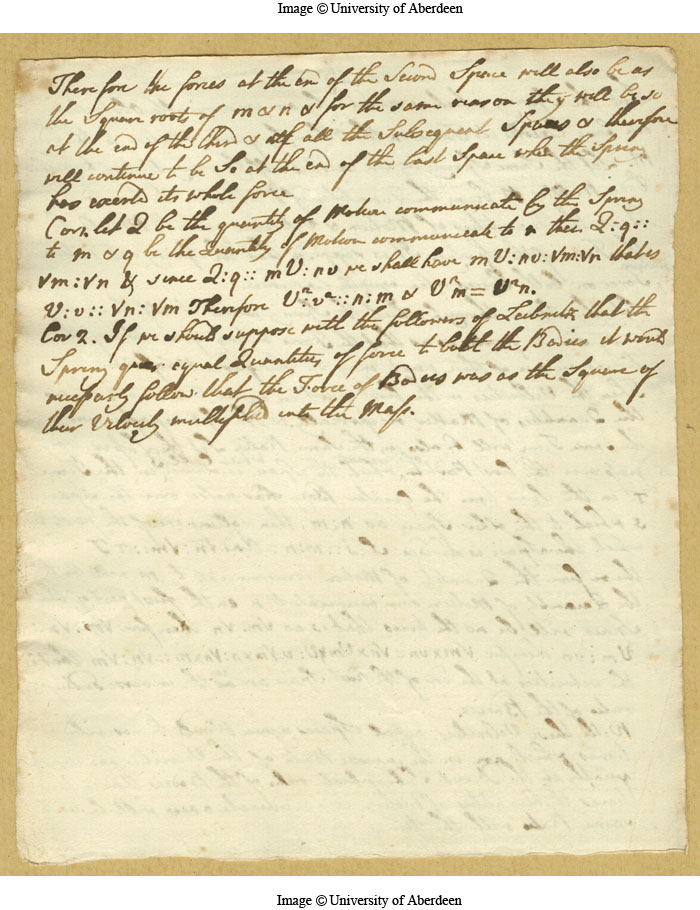 Image © University of Aberdeen
Therefore the forces at the end of the Second Space will also be as
the Square roots of m & n & for the same reason they will be so
at the end of the third & of all the Subsequent Spaces & therefore
will continue to be So at the end of the last Space when the Spring
has exerted its whole force
Cor. let Q be the quantity of Motion communicate by the Spring
to m & q be the Quantity of Motion communicate to n then Q:q::
√m:√n & since Q:q:: mU:nv we shall have mU:nv:√m:√n that is
U:v:: √n:√m Therefore U²:v²::n:m & U²m = v²n.
Cor 2. If we should suppose with the followers of Leibnitz that the
Spring gives equal Quantities of force to both the Bodies it would
necessarly follow that the Force of Bodies was as the Square of
their Velocity multiplied into the Mass.
Image © University of Aberdeen